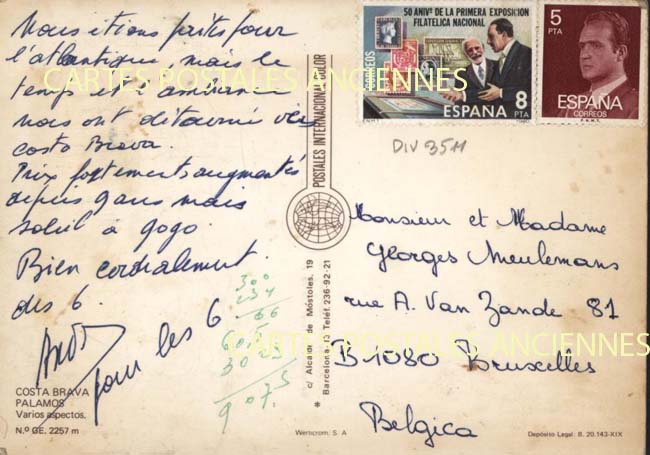 Nous étions partis pour
l'atlantique, mais le
temps et
nous ont détourné vers
costa Brava.
Prix fortements augmentés
depuis 9 ans mais
soleil à gogo.
Bien cordialement
des 6.
pour les 6
COSTA BRAVA
PALAMOS
Varios aspectos.
N.º GE. 2257 m
300
234
66
9 07.5
CARTES POSTALES ANCIENNES
CARTES POSTALES ANCIENNES
POSTALES INTERNACIONAL COLOR
c/ Alcalde de Móstoles, 19
Barcelona-13 Teléf. 236-92-21
Wertscrom. S. A
50 ANIVº DE LA PRIMERA EXPOSICION
FILATELICA NACIONAL
CORREOS
ESPAÑA 8 PTA
1980
5
PTA
ESPAÑA
CORREOS
F.N.M.T.
DIV 3511
Monsieur et Madame
Georges Meulemans
rue A. Van Zande 81
B 1080 Bruxelles
Belgica
Depósito Legal: B. 20.143-XIX